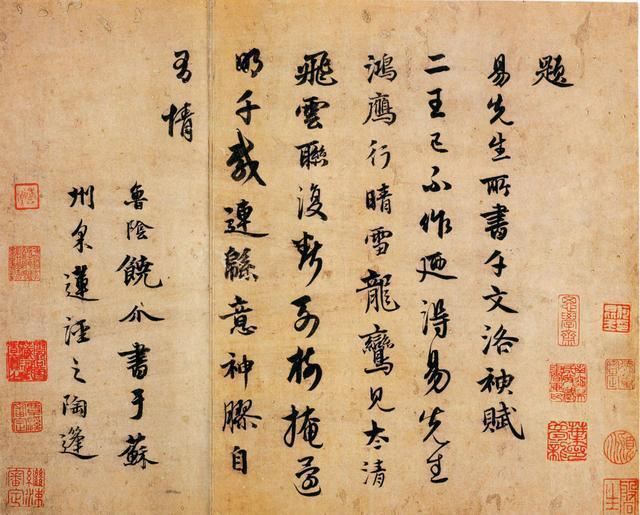 題
易先生所書千文洛神賦
二王已不作廼得易先生
鴻鷹行晴雪龍鸞見太清
飛雲聯復斷掩還
明千載連緜意神膠自
有情
魯陰饒介書于蘇
州采蓮涇之陶蓬